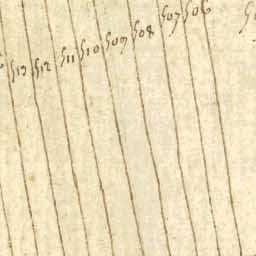 513 512 511 510 509 508 507 506